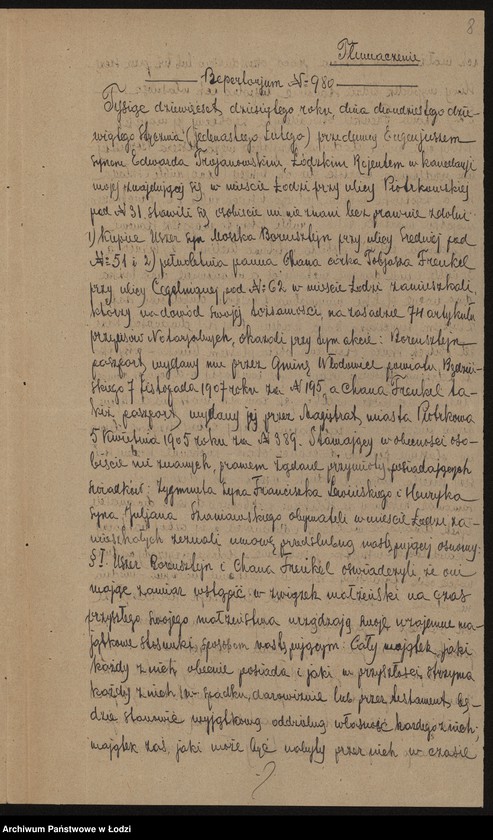 8
Tłumaczenie
Repertorjum № 980
Tysiąc dziewięćset dziesiątego roku, dnia dwudziestego dzie-
wiątego Stycznia (jedenastego Lutego) przedemną Eugenjuszem
synem Edwarda Trojanowskim, Łódzkim Rejentem w kancelaryi
mojej znajdującej się w mieście Łodzi przy ulicy Piotrkowskiej
pod № 31 stawili się osobiście mi nie znani lecz prawnie zdolni:
1) kupiec Uszer syn Moszka Borensztejn przy ulicy Średniej pod
№ 51 i 2) pełnoletnia panna Chana córka Tobjasza Frenkel
przy ulicy Cegielnianej pod № 62 w mieście Łodzi zamieszkali,
którzy na dowód swojej tożsamości, na zasadzie 74 artykułu
przepisów Notarjalnych, okazali przy tym akcie: Borensztejn
paszport, wydany mu przez Gminę Włodowice powiatu Będziń-
skiego 7 Listopada 1907 roku za № 195, a Chana Frenkel ta-
kiż paszport, wydany jej przez Magistrat miasta Piotrkowa
5 Kwietnia 1905 roku za № 389. Stawający w obecności oso-
biście mi znanych, prawem żądane przymioty posiadających
świadków: Zygmunta syna Franciszka i Henryka
syna Juljana Szumowskiego obywateli w mieście Łodzi za-
mieszkałych zeznali umowę przedślubną następującej osnowy:
§ I. Uszer Borensztejn i Chana Frenkel oświadczyli, że oni
mając zamiar wstąpić w związek małżeński na czas
przyszłego swojego małżeństwa urządzają swoje wzajemne ma-
jątkowe stosunki, sposobem następującym: Cały majątek, jaki
każdy z nich obecnie posiada i jaki w przyszłości otrzyma
każdy z nich w spadku, darowiźnie lub przez testament, bę-
dzie stanowić wyjątkową oddzielną własność każdego z nich;
majątek zaś, jaki może być nabyty przez nich w czasie
Archiwum Państwowe w Łodzi